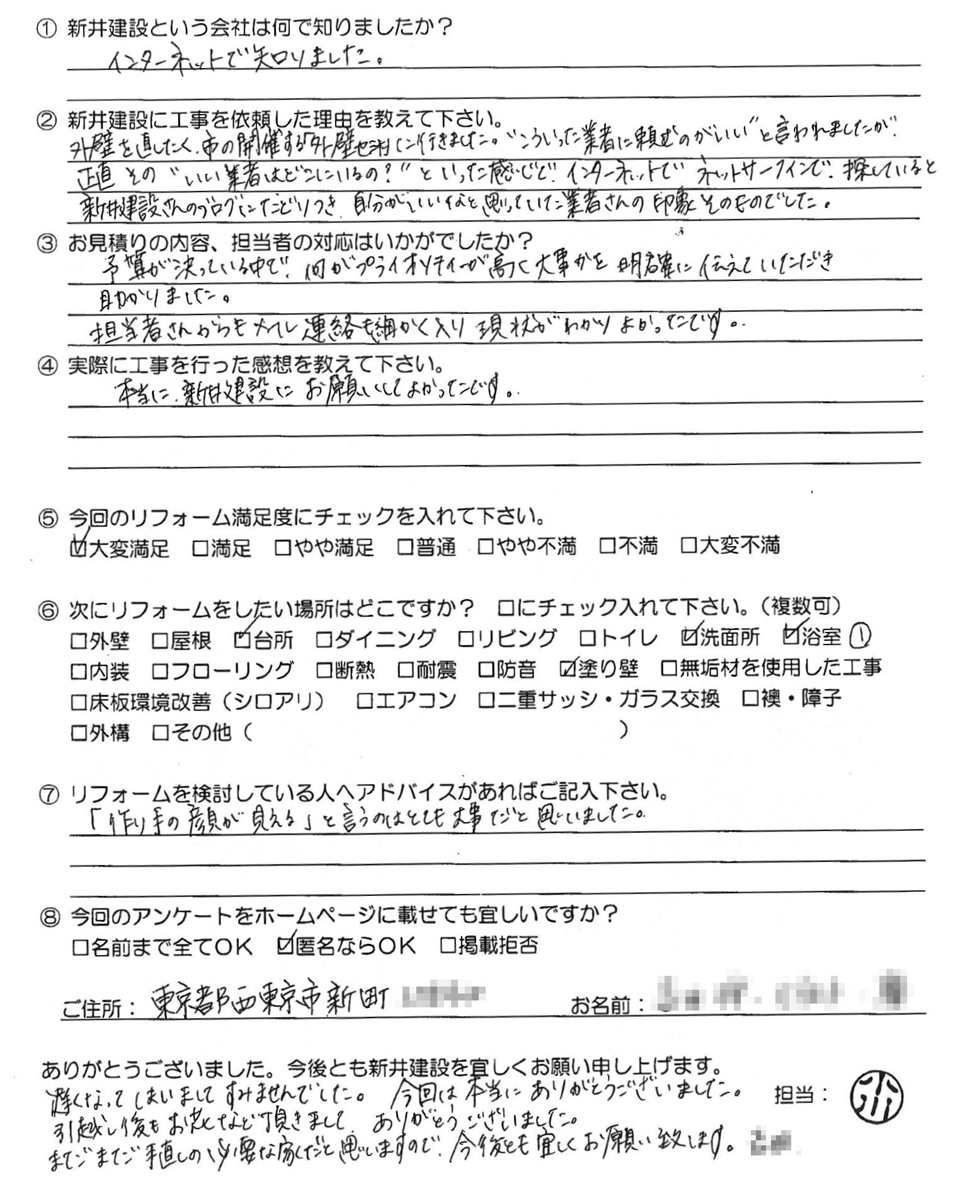 ① 新井建設という会社は何で知りましたか？
インターネットで知りました。
② 新井建設に工事を依頼した理由を教えて下さい。
外壁を直したく、市の開催する外壁セミナーに行きました。"こういった業者に頼むのがいい"と言われましたが
正直 その"いい業者はどこにいるの？"といった感じで、インターネットで ネットサーフィンで、探していると
新井建設さんのブログにたどりつき、自分がいいなと思っていた業者さんの印象そのものでした。
③ お見積りの内容、担当者の対応はいかがでしたか？
予算が決っている中で、何がプライオリティーが高く大事かを 明確に伝えていただき
助かりました。
担当者さんからも 連絡も細かく入り 現状がわかりよかったです。
④ 実際に工事を行った感想を教えて下さい。
本当に、新井建設に お願いしてよかったです。
⑤ 今回のリフォーム満足度にチェックを入れて下さい。
☑大変満足 □満足 □やや満足 □普通 □やや不満 □不満 □大変不満
⑥ 次にリフォームをしたい場所はどこですか？ □にチェック入れて下さい。（複数可）
□外壁 □屋根 ☑台所 □ダイニング □リビング □トイレ ☑洗面所 ☑浴室 ①
□内装 □フローリング □断熱 □耐震 □防音 ☑塗り壁 □無垢材を使用した工事
□床板環境改善（シロアリ） □エアコン □二重サッシ・ガラス交換 □襖・障子
□外構 □その他（ ）
⑦ リフォームを検討している人へアドバイスがあればご記入下さい。
「作り手の顔が見える」と言うのはとても大事だと思いました。
⑧ 今回のアンケートをホームページに載せても宜しいですか？
□名前まで全てOK ☑匿名ならOK □掲載拒否
ご住所： 東京都西東京市新町 お名前：
ありがとうございました。今後とも新井建設を宜しくお願い申し上げます。
遅くなってしまいまして すみませんでした。 今回は本当にありがとうございました。 担当：
引越し後もお花など頂きまして、ありがとうございました。
まだまだ手直しの必要な家だと思いますので、今後とも宜しくお願い致します。